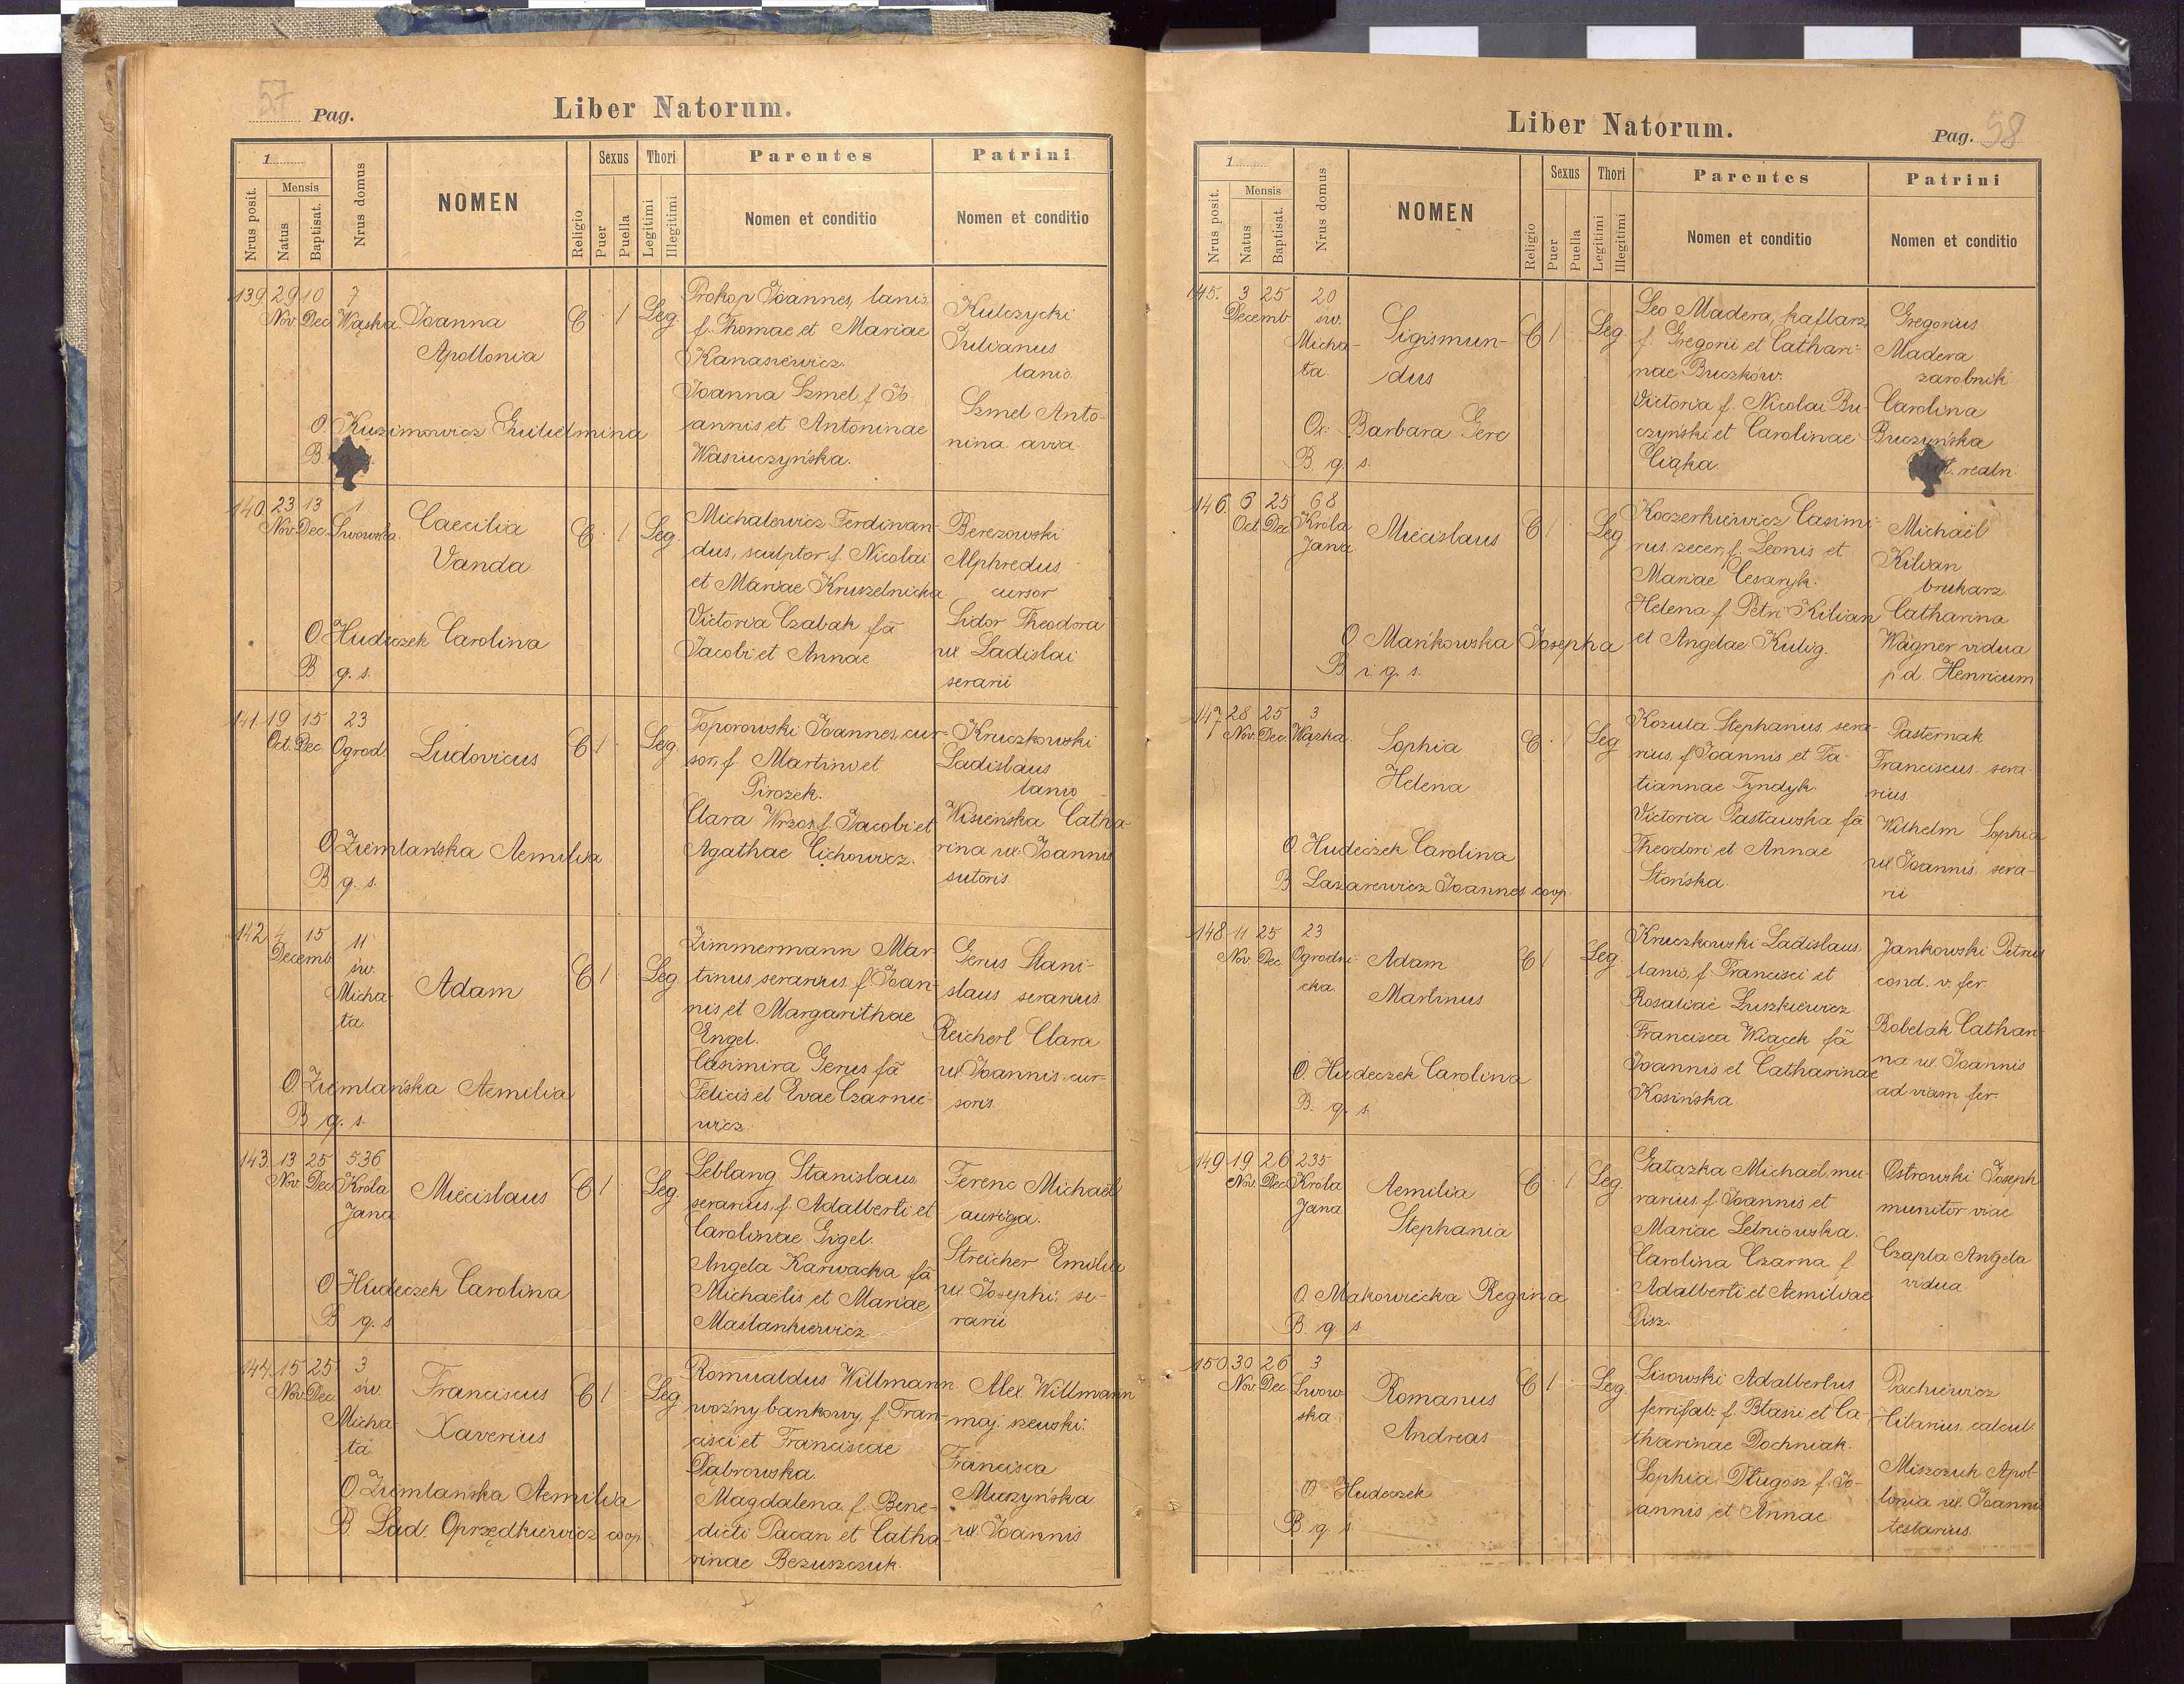 57 Pag. Liber Natorum.
1
Nrus posit. Mensis Natus Baptisat. Nrus domus NOMEN Religio Sexus Puer Puella Thori Legitimi Illegitimi Parentes Nomen et conditio Patrini Nomen et conditio
139. 29 Nov. 10 Dec. 7 Wąska. Joanna Apollonia C 1 Leg.
Prokop Joannes, lanio,
f. Thomae et Mariae
Kanasiewicz.
Joanna Szmel, f. Jo-
annis et Antoninae
Wasiuczyńska.
Kulczycki
Julianus
lanio.
Szmel Anto-
nina avva
O. Kuzimowicz Guilelmina
B.
140. 23 Nov. 13 Dec. 1 Lwowska Caecilia Vanda C 1 Leg.
Michalewicz Ferdinan-
dus, sculptor, f. Nicolai
et Mariae Kruszelnicka
Victoria Czabak fa
Jacobi et Annae
Berezowski
Alphredus
cursor
Sidor Theodora
ux. Ladislai
serarii
O Hudeczek Carolina
B g. s.
141. 19 Oct. 15 Dec. 23 Ogrod. Ludovicus C 1 Leg.
Toporowski Joannes, cur-
sor, f. Martino et
Pirozek.
Clara Wrzos, f. Jacobi et
Agathae Cichowicz.
Kruczkowski
Ladislaus
lanio
Wisieńska Catha-
rina ux. Joannis
sutoris.
O Ziemlańska Aemilia
B g. s.
142. 4 15 Decemb. 11 św. Micha-ła. Adam C 1 Leg.
Zimmermann Mar-
tinus serarius, f. Joan-
nis et Margarithae
Engel.
Casimira Gerus fa
Felicis et Evae Czarnie-
wicz.
Gerus Stani-
slaus serarius.
Reichert Clara
ux. Joannis cur-
soris.
O Ziemlańska Aemilia
B. g. s.
143. 13 Nov. 25 Dec. 536 Króla Jana Miecislaus C 1 Leg.
Leblang Stanislaus
serarius, f. Adalberti et
Carolinae Gigel.
Angela Karwacka fa
Michaelis et Mariae
Maslankiewicz.
Ferenc Michaël
auriga.
Streicher Emilia
ux. Josephi se-
rarii
O Hudeczek Carolina
B g. s
144. 15 Nov. 25 Dec. 3 św. Micha-ła. Franciscus Xaverius C 1 Leg
Romualdus Willmann
woźny bankowy, f. Fran-
cisci et Franciscae
Dąbrowska.
Magdalena, f. Bene-
dicti Pacan et Catha-
rinae Bezuszczuk.
Alex Willmann
maj. szewski.
Francisca
Muzyńska
ux. Joannis
O. Ziemlańska Aemilia
B. Lad. Oprzędkiewicz coop.
Liber Natorum. Pag. 58
1
Nrus posit. Mensis Natus Baptisat. Nrus domus NOMEN Religio Sexus Puer Puella Thori Legitimi Illegitimi Parentes Nomen et conditio Patrini Nomen et conditio
145. 3 25 Decemb. 20 św. Micha-ła. Sigismun-dus C 1 Leg.
Leo Madera, kaflarz,
f. Gregorii et Cathari-
nae Buczków.
Victoria f. Nicolai Bu-
czyński et Carolinae
Ciąka.
Gregorius
Madera
zarobnik.
Carolina
Buczyńska
realn.
O: Barbara Gerc
B. g. s.
146. 6 Oct. 25 Dec. 68 Króla Jana Miecislaus C 1 Leg
Koczerkiewicz Casimi-
rus, zecer, f. Leonis et
Mariae Cesaryk.
Helena, f. Petri Kilian
et Angelae Kulig.
Michaël
Kilian
brukarz.
Catharina
Wagner vidua
p d. Henricum
O Mańkowska Josepha
B i. g. s.
147. 28 Nov. 25 Dec. 3 Wązka. Sophia Helena C 1 Leg
Kozula Stephanus sera-
rius, f. Joannis et Ta-
tiannae Tyndyk.
Victoria Pasławska fa
Theodori et Annae
Słońska.
Pasternak
Franciscus sera-
rius.
Wilhelm Sophia
ux. Joannis, sera-
rii
O. Hudeczek Carolina
B Lazarewicz Joannes coop.
148. 11 Nov. 25 Dec. 23 Ogrodni-cka. Adam Martinus C 1 Leg.
Kruczkowski Ladislaus,
lanio, f. Francisci et
Rosaliae Luszkiewicz
Francisca Wiącek fa
Joannis et Catharinae
Kosińska
Jankowski Petrus
cond. v. fer.
Bobelak Cathari-
na ux. Joannis
ad viam fer.
O. Hudeczek Carolina
B. g. s.
149. 19 Nov. 26 Dec. 235 Króla Jana Aemilia Stephania C 1 Leg.
Gałązka Michaël, mu-
rarius, f. Joannis et
Mariae Letniowska.
Carolina Czarna f.
Adalberti et Aemiliae
Disz.
Ostrowski Joseph
munitor viae
Czapla Angela
vidua.
O. Makowiecka Regina
B. g. s
150. 30 Nov. 26 Dec. 3 Lwow-ska. Romanus Andreas C 1 Leg.
Lisowski Adalbertus
ferrifab. f. Blasii et Ca-
tharinae Dochniak.
Sophia Długosz f. Jo-
annis et Annae
Pachiewicz
Hilarius, calcul.
Miszczuk Apol-
lonia ux. Joannis
testarius.
O Hudeczek
B. g. s